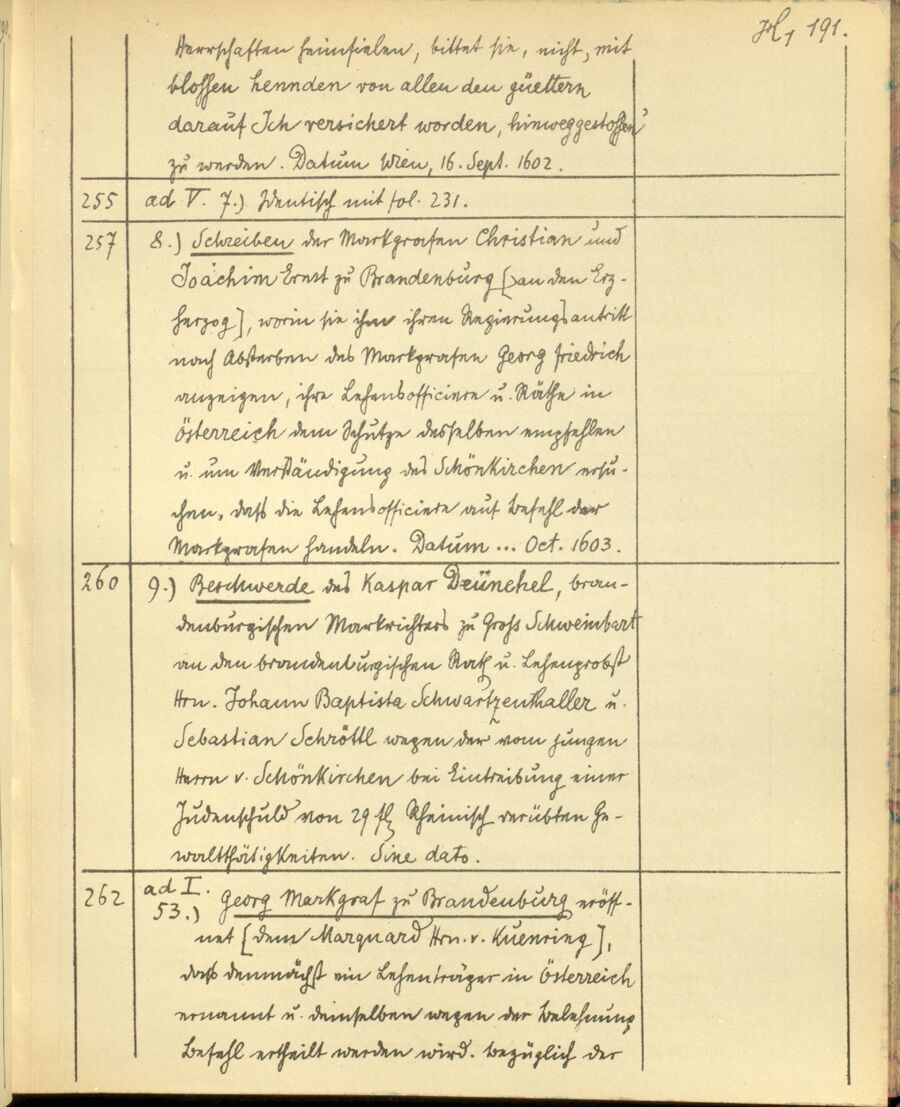 H, 191.
Herrschaften heimfielen, bittet sie, nicht, mit
blossen hennden von allen den güettern
darauf Ich versichert worden, hinweggestossen
zu werden. Datum Wien, 16. Sept. 1602.
255 ad V. 7.) Identisch mit fol. 231.
257 8.) Schreiben der Markgrafen Christian und
Joachim Ernst zu Brandenburg [an den Erz-
herzog], worin sie ihm ihren Regierungsantritt
nach Absterben des Markgrafen Georg Friedrich
anzeigen, ihre Lehensofficiere u. Räthe in
Österreich dem Schutze desselben empfehlen
u. um Verständigung des Schönkirchen ersu-
chen, daß die Lehensofficiere auf Befehl der
Markgrafen handeln. Datum ... Oct. 1603.
260 9.) Beschwerde des Kaspar, bran-
denburgischen Markrichters zu Groß Schweinbart
an den brandenburgischen Rath u. Lehenprobst
Hrn. Johann Baptista Schwartzenthaller u.
Sebastian Schröttl wegen der vom jungen
Herrn v. Schönkirchen bei Eintreibung einer
Judenschuld von 29 fl Rheinisch verübten Ge-
waltthätigkeiten. Sine dato.
262 ad I.
53.) Georg Markgraf zu Brandenburg eröff-
net [dem Marquard Hrn. v. Kuenring],
daß demnächst ein Lehenträger in Österreich
ernannt u. demselben wegen der Belehnung
Befehl ertheilt werden wird. Bezüglich der